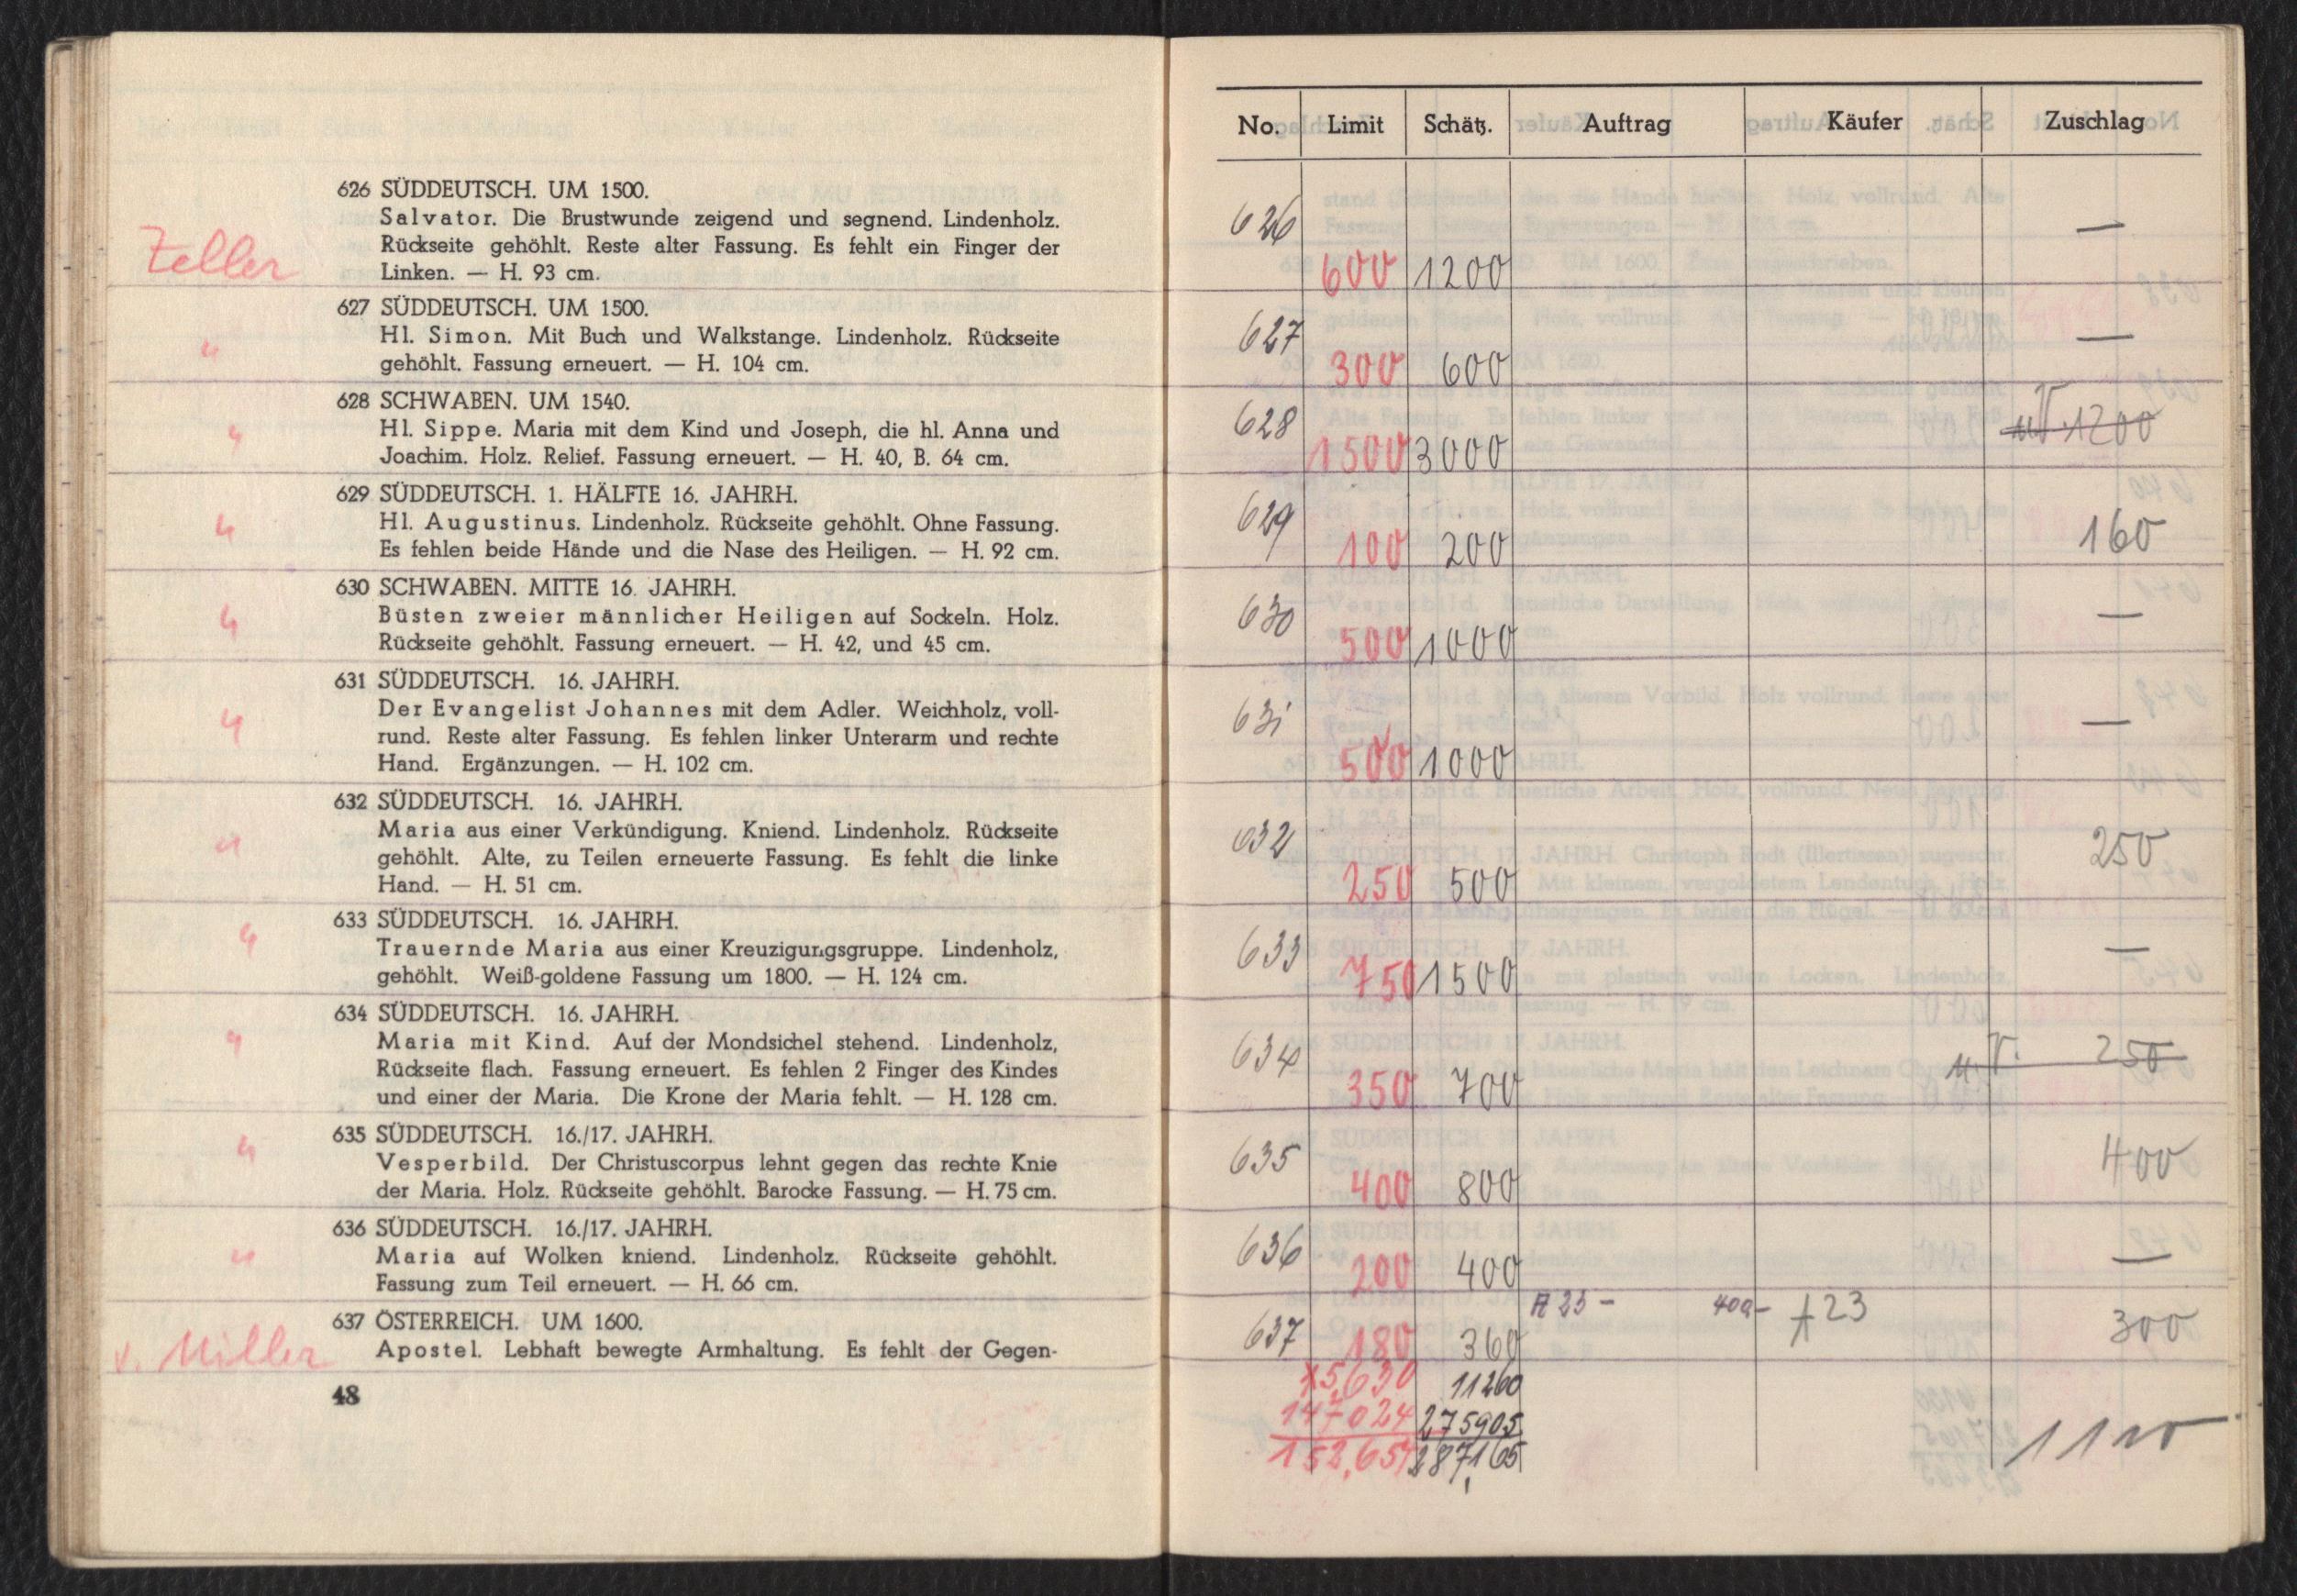 626 SÜDDEUTSCH. UM 1500.
Salvator. Die Brustwunde zeigend und segnend. Lindenholz.
Rückseite gehöhlt. Reste alter Fassung. Es fehlt ein Finger der
Zeller Linken. — H. 93 cm.
627 SÜDDEUTSCH. UM 1500.
Hl. Simon. Mit Buch und Walkstange. Lindenholz. Rückseite
" gehöhlt. Fassung erneuert. — H. 104 cm.
628 SCHWABEN. UM 1540.
" Hl. Sippe. Maria mit dem Kind und Joseph, die hl. Anna und
Joachim. Holz. Relief. Fassung erneuert. — H. 40, B. 64 cm.
629 SÜDDEUTSCH. 1. HÄLFTE 16. JAHRH.
" Hl. Augustinus. Lindenholz. Rückseite gehöhlt. Ohne Fassung.
Es fehlen beide Hände und die Nase des Heiligen. — H. 92 cm.
630 SCHWABEN. MITTE 16. JAHRH.
" Büsten zweier männlicher Heiligen auf Sockeln. Holz.
Rückseite gehöhlt. Fassung erneuert. — H. 42, und 45 cm.
631 SÜDDEUTSCH. 16. JAHRH.
Der Evangelist Johannes mit dem Adler. Weichholz, voll-
" rund. Reste alter Fassung. Es fehlen linker Unterarm und rechte
Hand. Ergänzungen. — H. 102 cm.
632 SÜDDEUTSCH. 16. JAHRH.
Maria aus einer Verkündigung. Kniend. Lindenholz. Rückseite
" gehöhlt. Alte, zu Teilen erneuerte Fassung. Es fehlt die linke
Hand. — H. 51 cm.
633 SÜDDEUTSCH. 16. JAHRH.
" Trauernde Maria aus einer Kreuzigungsgruppe. Lindenholz,
gehöhlt. Weiß-goldene Fassung um 1800. — H. 124 cm.
634 SÜDDEUTSCH. 16. JAHRH.
" Maria mit Kind. Auf der Mondsichel stehend. Lindenholz,
Rückseite flach. Fassung erneuert. Es fehlen 2 Finger des Kindes
und einer der Maria. Die Krone der Maria fehlt. — H. 128 cm.
635 SÜDDEUTSCH. 16./17. JAHRH.
" Vesperbild. Der Christuscorpus lehnt gegen das rechte Knie
der Maria. Holz. Rückseite gehöhlt. Barocke Fassung. — H. 75 cm.
636 SÜDDEUTSCH. 16./17. JAHRH.
" Maria auf Wolken kniend. Lindenholz. Rückseite gehöhlt.
Fassung zum Teil erneuert. — H. 66 cm.
637 ÖSTERREICH. UM 1600.
v. Miller Apostel. Lebhaft bewegte Armhaltung. Es fehlt der Gegen-
48
No. Limit Schätz. Auftrag Käufer Zuschlag
626 600 1200 —
627 300 600 —
628 1500 3000 1200
629 100 200 160
630 500 1000 —
631 500 1000 —
632 250 500 250
633 750 1500 —
634 350 700 250
635 400 800 400
636 200 400 —
637 180 360 A 23 – 400– A 23 300
5,630 11260
147024 275905
152,654 287,165